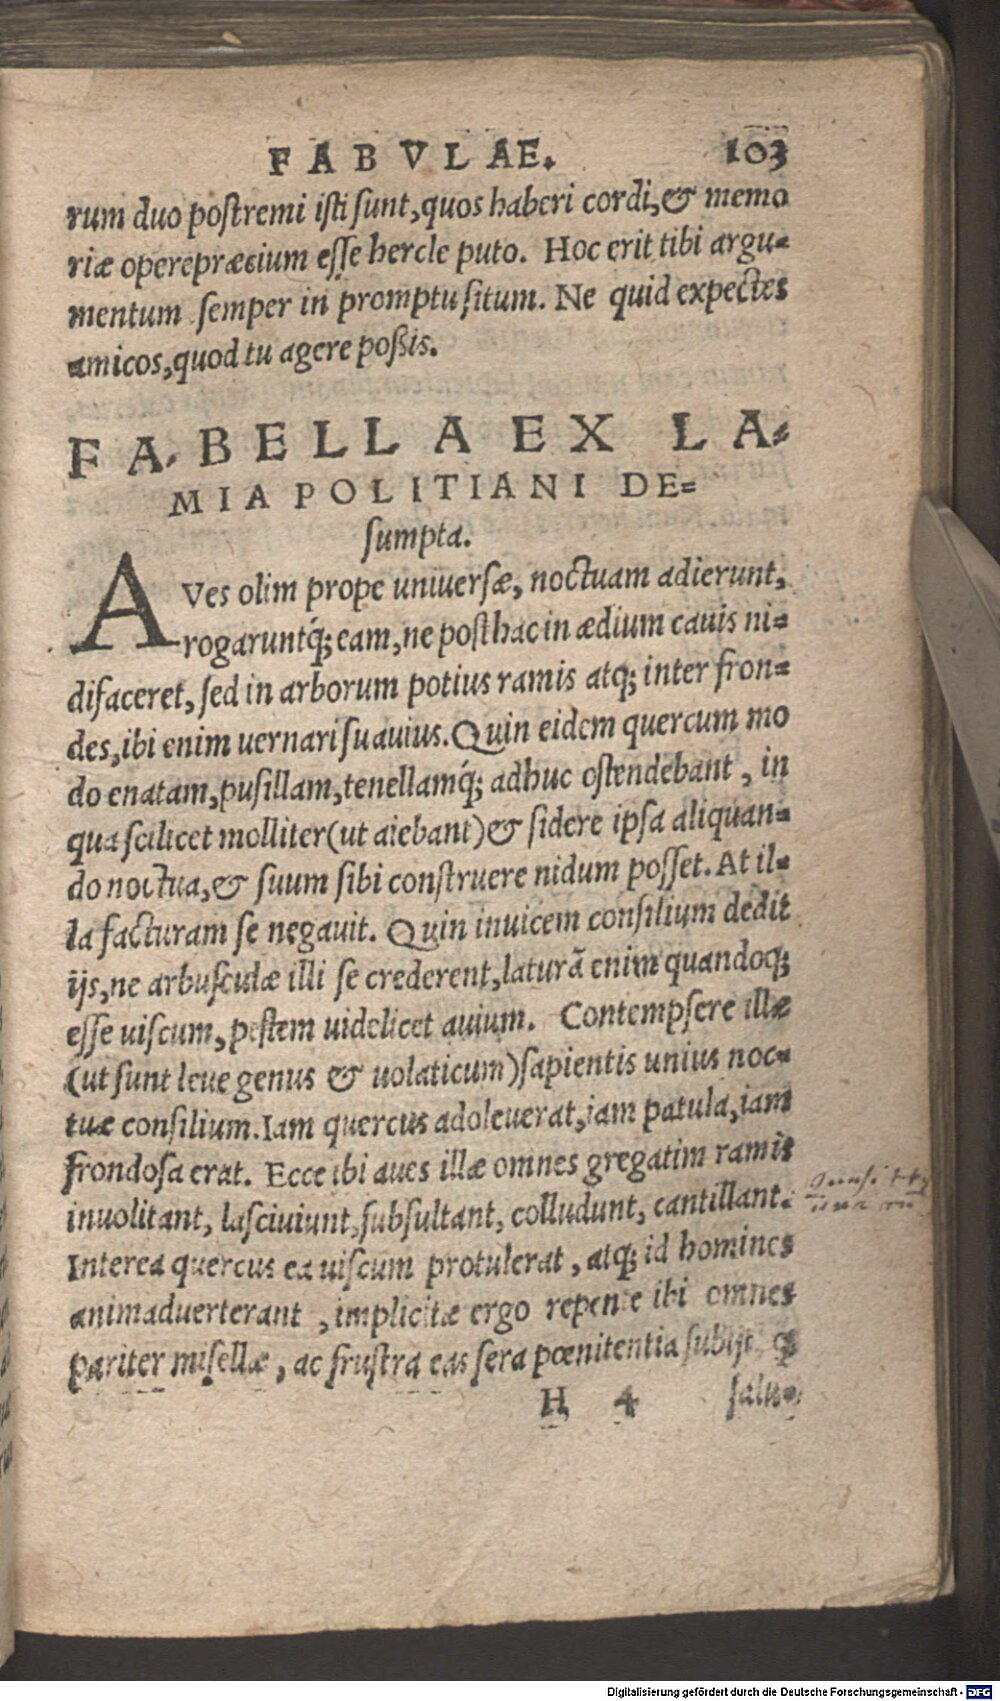 FABVLAE. 103
rum duo postremi isti sunt, quos haberi cordi, & memo
riæ operepræcium esse hercle puto. Hoc erit tibi argu=
mentum semper in promptu situm. Ne quid expectes
amicos, quod tu agere poßis.
FABELLA EX LA=
MIA POLITIANI DE=
sumpta.
AVes olim prope uniuersæ, noctuam adierunt,
rogaruntq́; eam, ne posthac in ædium cauis ni=
difaceret, sed in arborum potius ramis atq; inter fron=
des, ibi enim uernari suauius. Quin eidem quercum mo
do enatam, pusillam, tenellamq́; adhuc ostendebant, in
qua scilicet molliter (ut aiebant) & sidere ipsa aliquan=
do noctua, & suum sibi construere nidum posset. At il=
la facturam se negauit. Quin inuicem consilium dedit
ijs, ne arbusculæ illi se crederent, laturā enim quandoq;
esse uiscum, pestem uidelicet auium. Contempsere illæ
(ut sunt leue genus & uolaticum) sapientis unius noc=
tuæ consilium. Iam quercus adoleuerat, iam patula, iam
frondosa erat. Ecce ibi aues illæ omnes gregatim ramis
inuolitant, lasciuiunt, subsultant, colludunt, cantillant.
Interea quercus ea uiscum protulerat, atq; id homines
animaduerterant, implicitæ ergo repente ibi omnes
pariter misellæ, ac frustra eas sera pœnitentia subijt, q
H 4 salu=
Digitalisierung gefördert durch die Deutsche Forschungsgemeinschaft - DFG